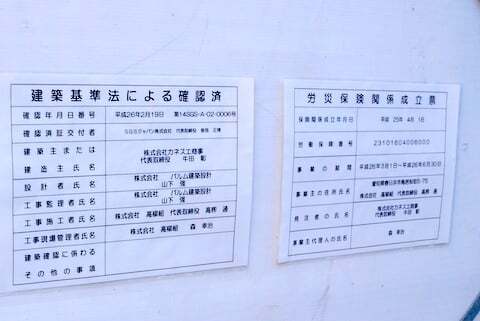 建築基準法による確認済
確認年月日番号 平成26年2月19日 第14SGS-A-02-0006号
確認済証交付者 SGSジャパン株式会社 代表取締役
建築主または
造営主氏名
株式会社カネスエ商事
代表取締役 牛田 彰
設計者氏名
株式会社 パルム建築設計
山下 強
工事監理者氏名
株式会社 パルム建築設計
山下 強
工事施工者氏名 株式会社 高柳組 代表取締役 高栁 通
工事現場管理者氏名 株式会社 高柳組 森 幸治
建築確認に係わる
その他の事項
労災保険関係成立票
保険関係成立年月日 平成 25年 4月 1日
労働保険番号 23101604006000
事業の期間 平成26年3月1日〜平成26年6月30日
事業主の住所氏名
株式会社高柳組 代表取締役 高栁 通
発注者の氏名
株式会社カネスエ商事
代表取締役 牛田 彰
事業主代理人の氏名 森 幸治